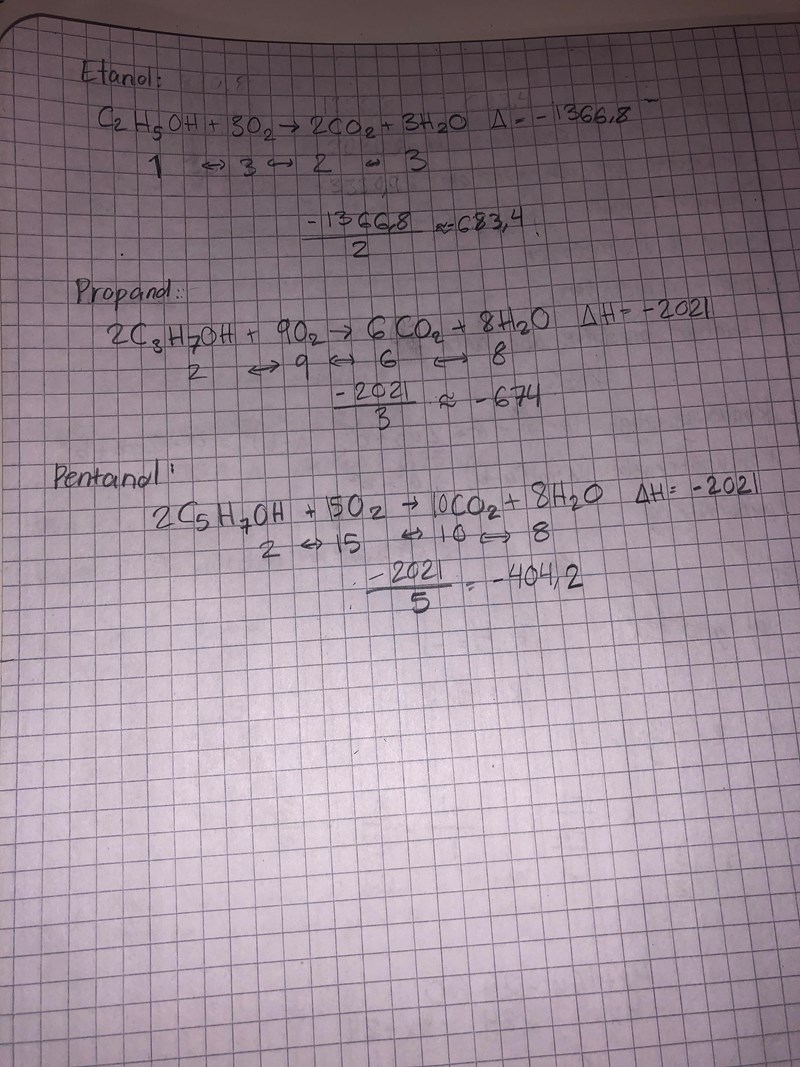 Etanol:
C₂H₅OH + 3O₂ → 2CO₂ + 3H₂O Δ = -1366,8
1 ↔ 3 ↔ 2 ↔ 3
-1366,8 / 2 ≈ 683,4
Propanol:
2C₃H₇OH + 9O₂ → 6CO₂ + 8H₂O ΔH = -2021
2 ↔ 9 ↔ 6 ↔ 8
-2021 / 3 ≈ -674
Pentanol:
2C₅H₇OH + 15O₂ → 10CO₂ + 8H₂O ΔH = -2021
2 ↔ 15 ↔ 10 ↔ 8
-2021 / 5 = -404,2